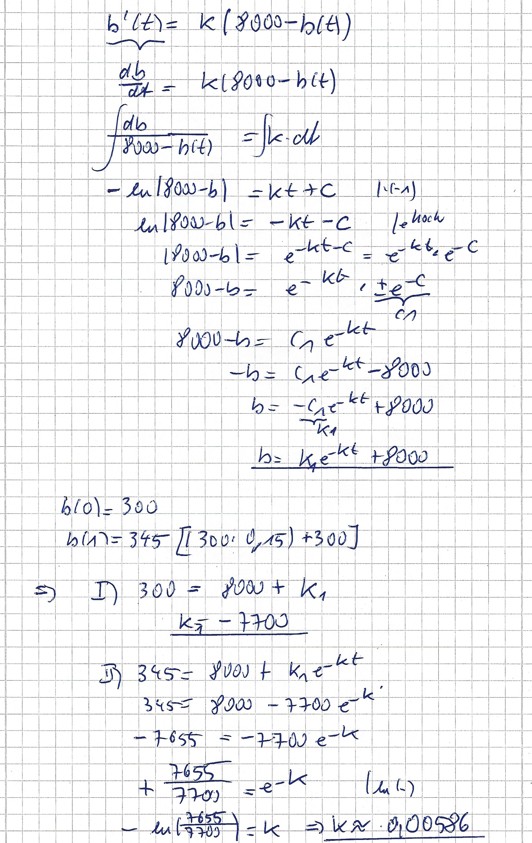 b'(t) = k(8000-b(t))
db/dt = k(8000-b(t))
∫ db/(8000-b(t)) = ∫k·dt
-ln|8000-b| = kt+C |·(-1)
ln|8000-b| = -kt-C |e hoch
|8000-b| = e^(-kt-C) = e^(-kt)·e^(-C)
8000-b = e^(-kt) · ±e^(-C)
C1
8000-b = C1 e^(-kt)
-b = C1e^(-kt) -8000
b = -C1e^(-kt) +8000
K1
b = K1e^(-kt) +8000
b(0)=300
b(1)=345 [(300·0,15)+300]
=> I) 300 = 8000 + K1
K1= -7700
II) 345 = 8000 + K1e^(-kt)
345= 8000 - 7700 e^(-k)
-7655 = -7700 e^(-k)
+ 7655/7700 = e^(-k) |ln(-)
- ln(7655/7700) = k => k ≈ 0,00586